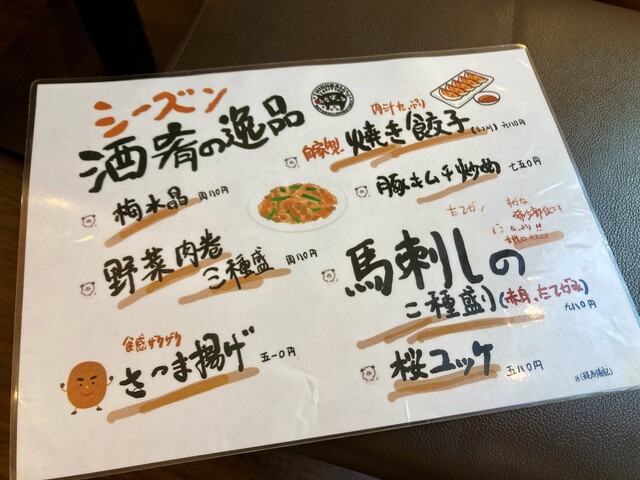 シーズン
酒肴の逸品
梅水晶 四八〇円
野菜肉巻
二種盛 四八〇円
食感ザクザク
さつま揚げ 五一〇円
肉汁たっぷり
自家製 焼き餃子 六八〇円
豚キムチ炒め 七五〇円
たてがみ
馬刺しの
二種盛り(赤身、たてがみ)
九八〇円
桜ユッケ 五八〇円